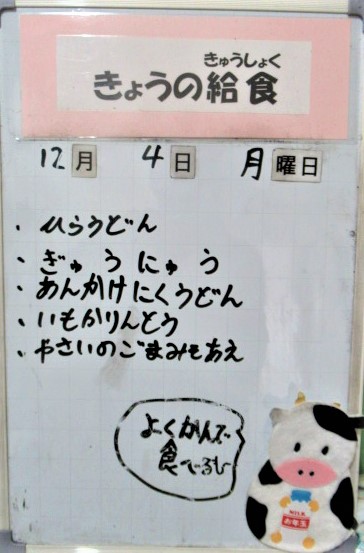 きゅうしょく
きょうの給食
12月 4日 月曜日
・ひらうどん
・ぎゅうにゅう
・あんかけにくうどん
・いもかりんとう
・やさいのごまみそあえ
よくかんで
食べるも
MILK
お年玉